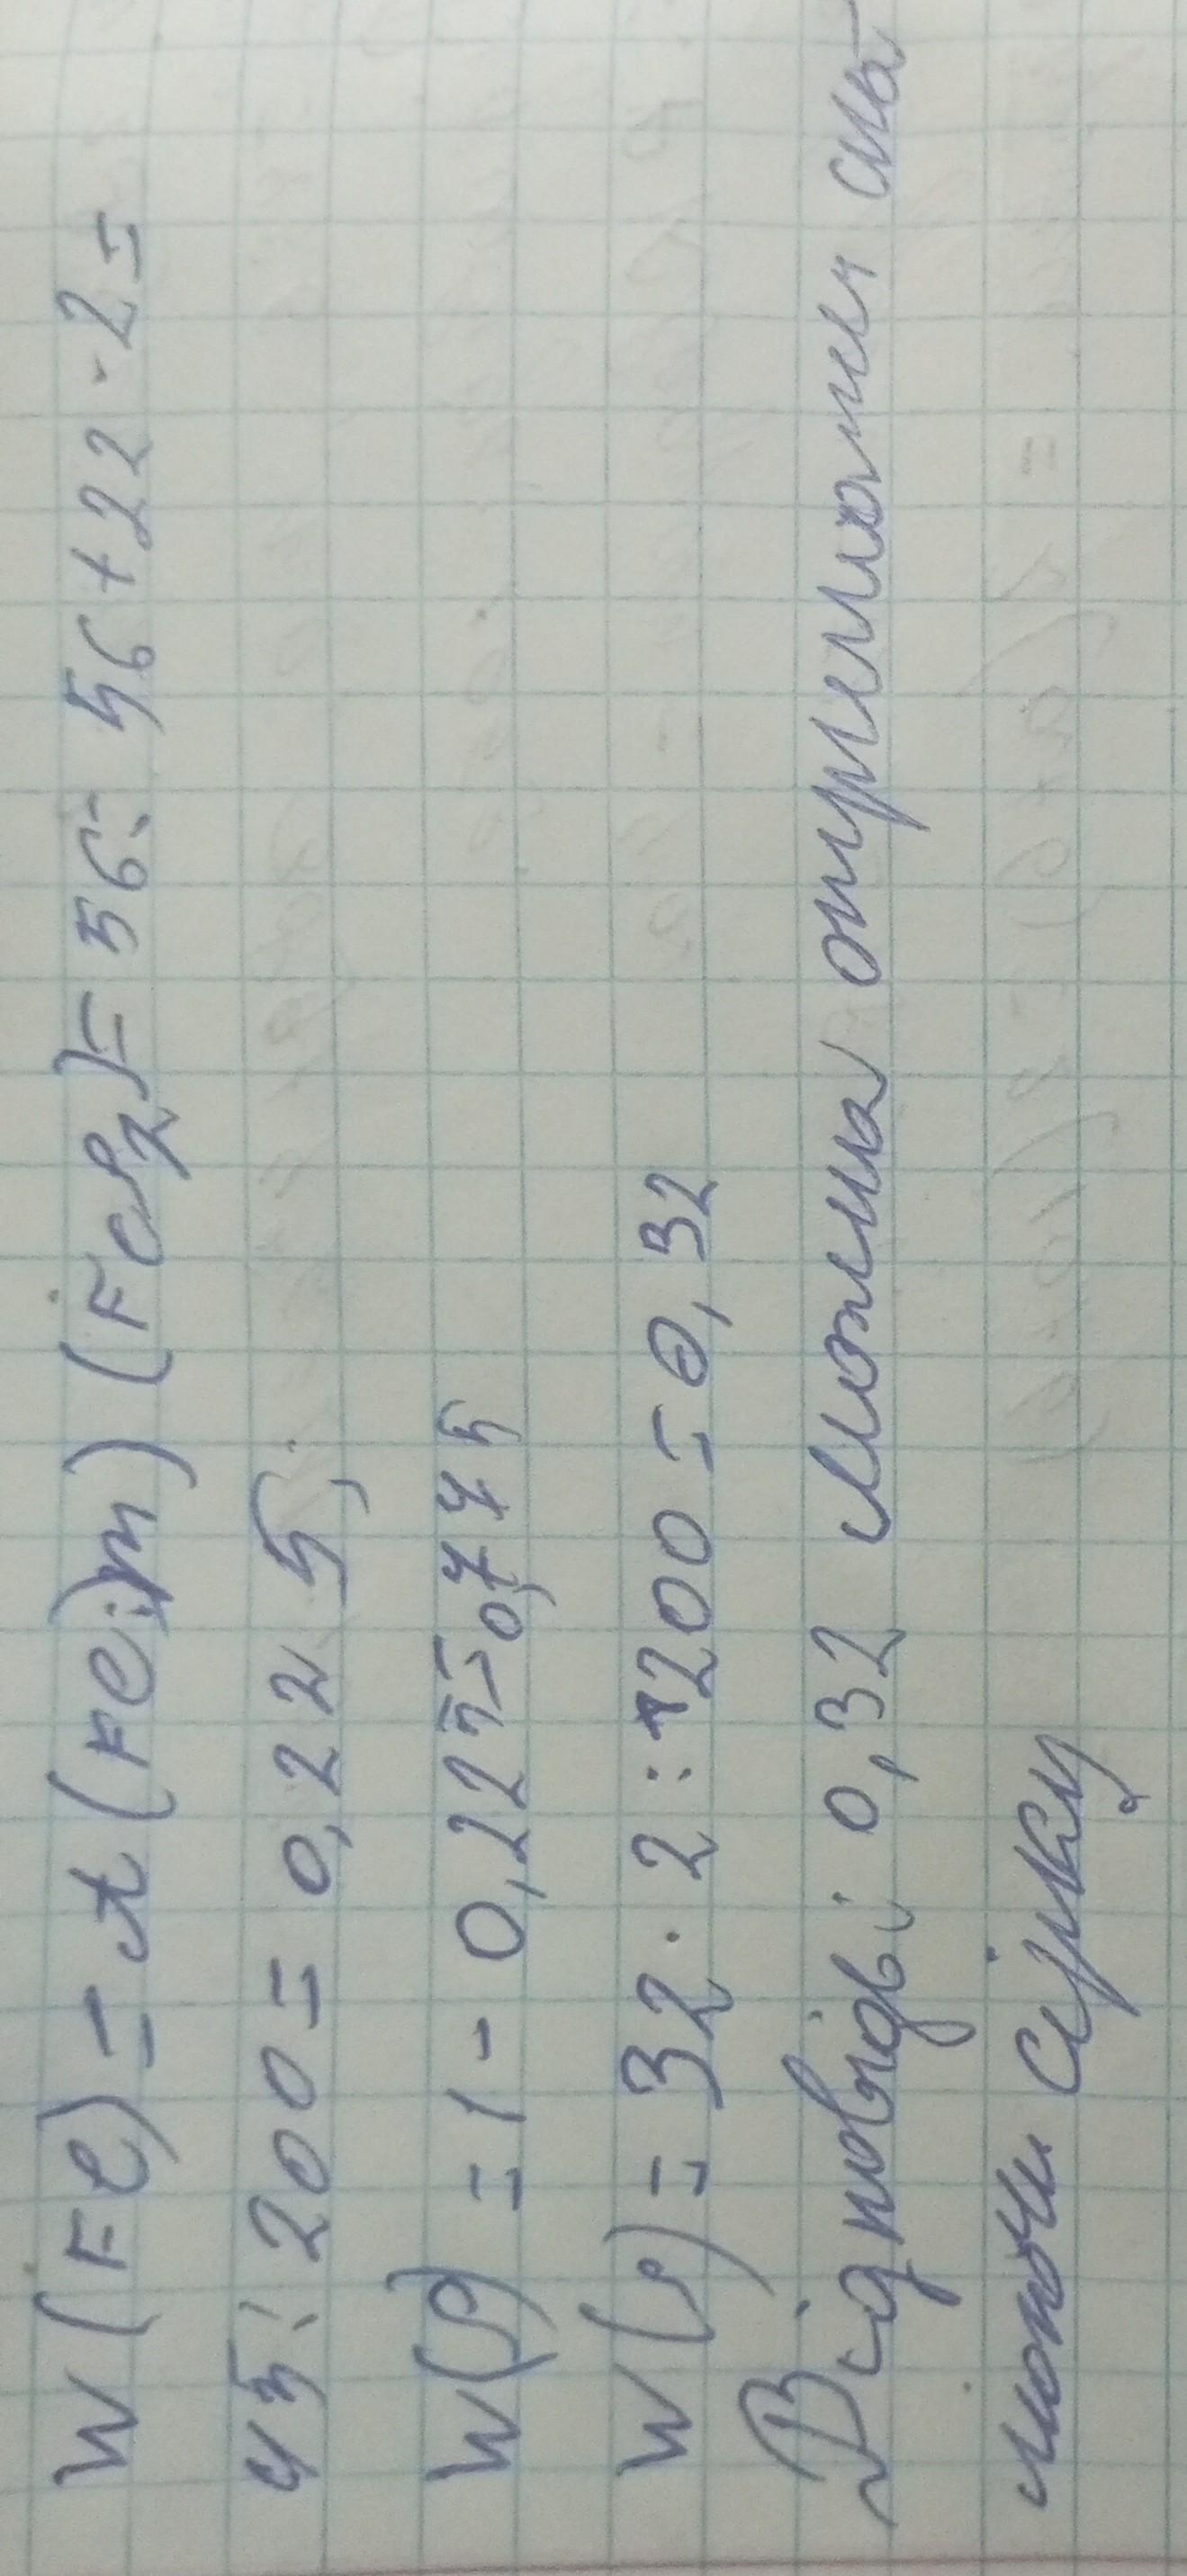 W (Fe) = A (Fe; m) (FeS₂) = 56: 56 + 22 · 2 =
45 : 200 = 0,225;
W(S) = 1 - 0,225 = 0,775
W(S) = 32 · 2 : 200 = 0,32
Відповідь: 0,32 можна
можчи сірку